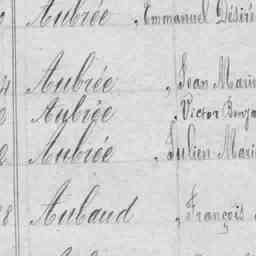 Aubrée , Emmanuel Désiré
Aubrée , Jean Marie
Aubrée , Victor
Aubrée , Julien Marie
8 Aubaud , François